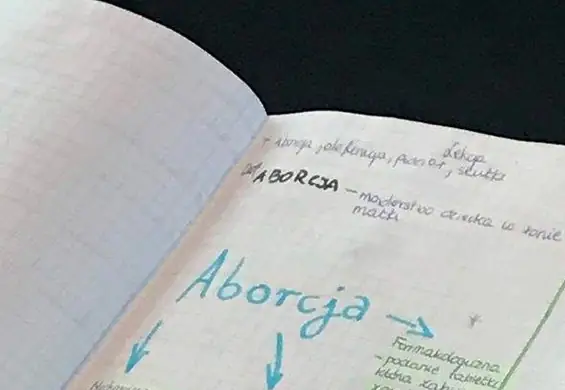 Lekcja
Aborcja, definicja, podział, skutki
Def ABORCJA – morderstwo dziecka w łonie
matki
Aborcja
Farmakologiczna
- podanie tabletki
która